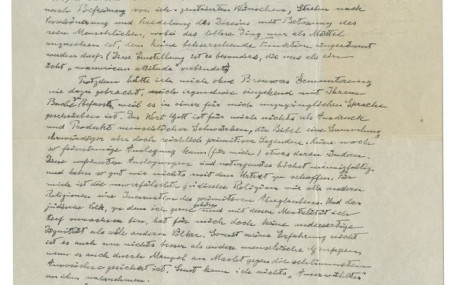 nach Befreiung von ich-zentrierten Wünschen, Streben nach
Verschönerung und Veredelung des Daseins mit Betonung des
rein Menschlichen, wobei das leblose Ding nur als Mittel
anzusehen ist, dem keine beherrschende Funktion eingeräumt
werden darf. (Diese Einstellung ist es besonders, die uns als ein
echt „unamerican attitude" verbindet)
Trotzdem hätte ich mich ohne Brouwers Ermunterung
nie dazu gebracht, mich irgendwie eingehend mit Ihrem
Buch zu befassen, weil es in einer für mich unzugänglichen Sprache
geschrieben ist. Das Wort Gott ist für mich nichts als Ausdruck
und Produkt menschlicher Schwächen, die Bibel eine Sammlung
ehrwürdiger aber doch reichlich primitiver Legenden. Keine noch
so feinsinnige Auslegung kann (für mich) etwas daran ändern.
Diese verfeinerten Auslegungen sind naturgemäss höchst mannigfaltig
und haben so gut wie nichts mit dem Urtext zu schaffen. Für
mich ist die unverfälschte jüdische Religion wie alle anderen
Religionen eine Incarnation des primitiven Aberglaubens. Und das
jüdische Volk, zu dem ich gerne gehöre und mit dessen Mentalität ich
tief verwachsen bin, hat für mich doch keine andersartige
Dignität als alle anderen Völker. Soweit meine Erfahrung reicht
ist es auch um nichts besser als andere menschliche Gruppen
wenn es auch durch Mangel an Macht gegen die schlimmsten
Auswüchse gesichert ist. Sonst kann ich nichts „Auserwähltes"
an ihm wahrnehmen.